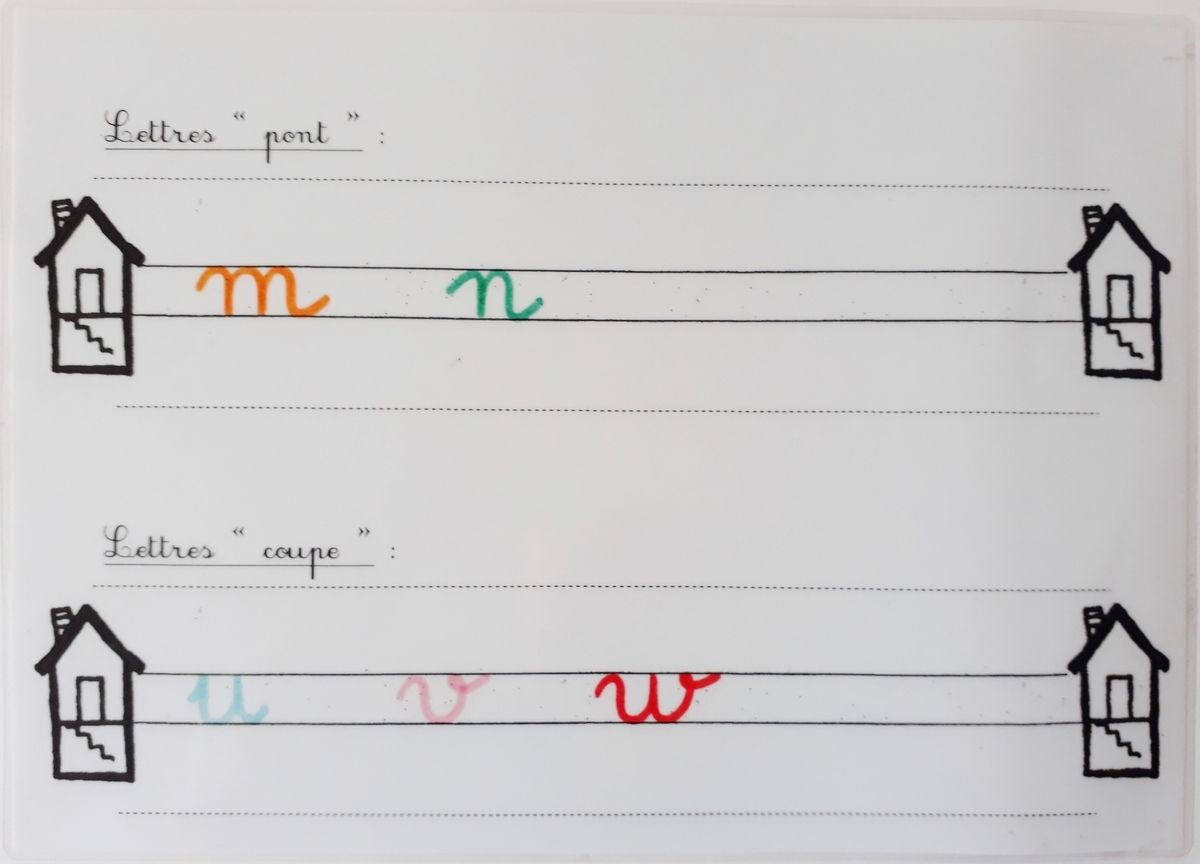 Lettres “ pont ” :
m n
Lettres “ coupe ” :
u v w